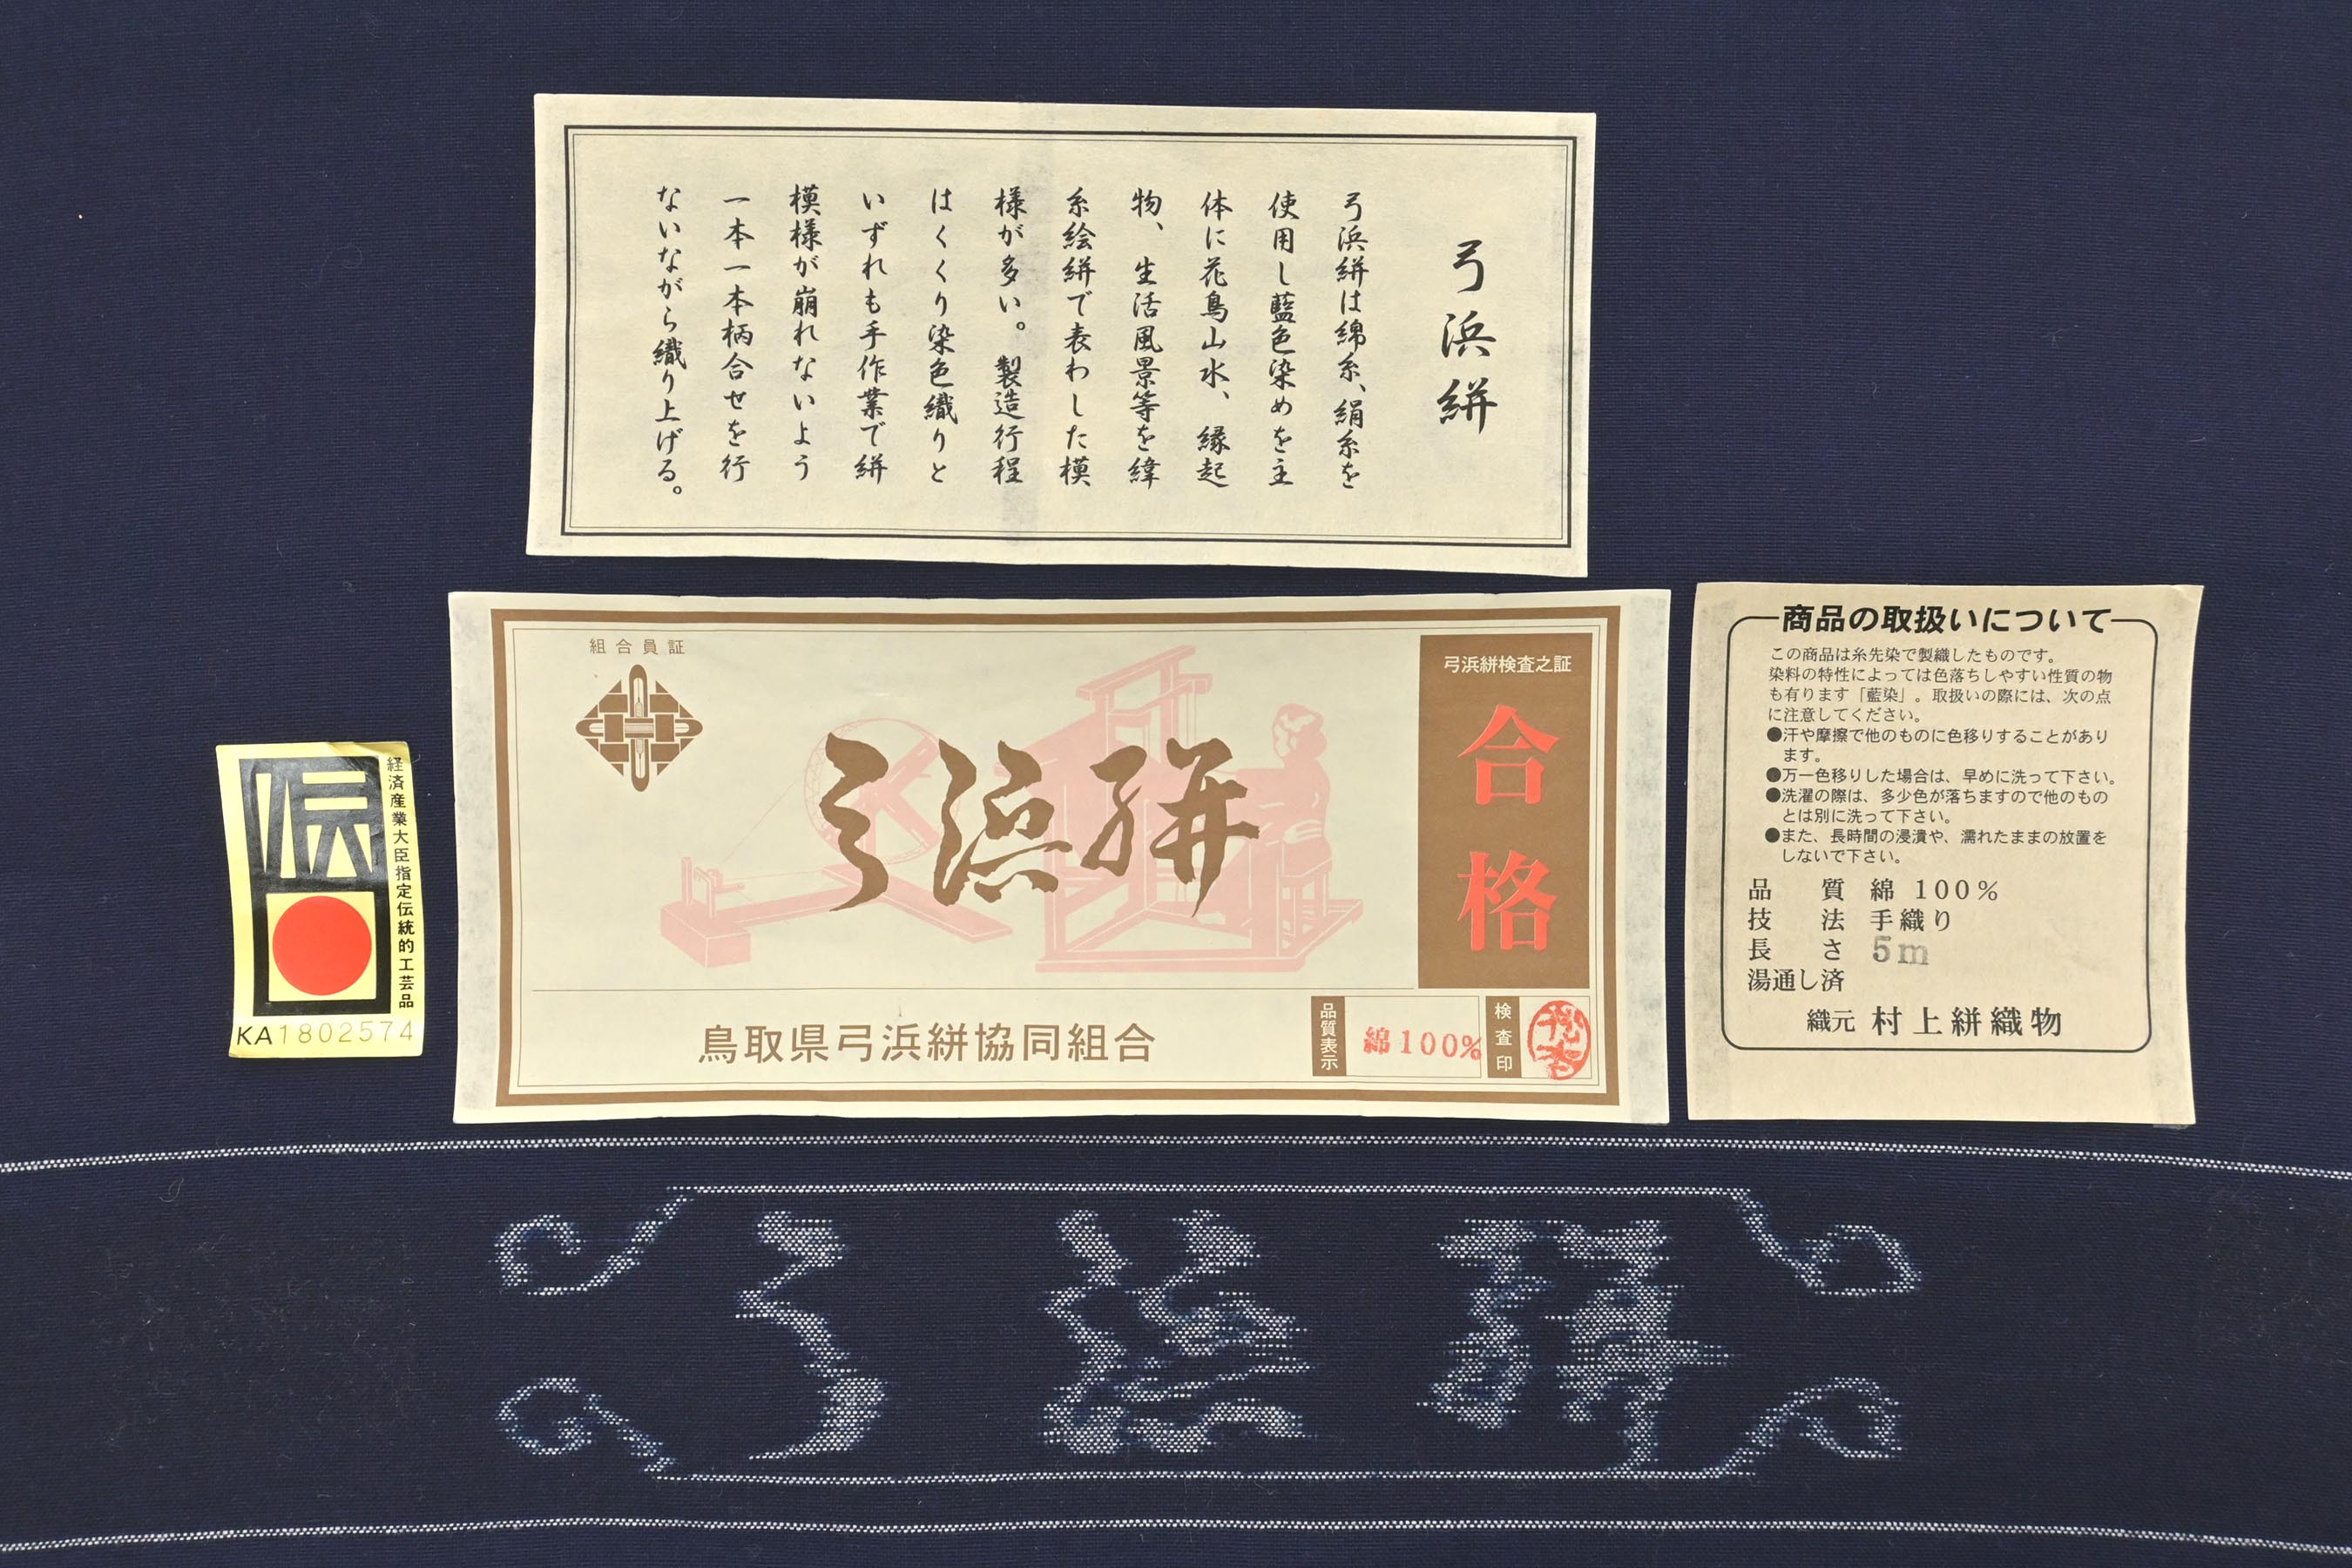 弓浜絣
弓浜絣は綿糸、絹糸を
使用し藍色染めを主
体に花鳥山水、縁起
物、生活風景等を緯
糸絵絣で表わした模
様が多い。製造行程
はくくり染色織りと
いずれも手作業で絣
模様が崩れないよう
一本一本柄合せを行
ないながら織り上げる。
組合員証
弓浜絣
弓浜絣検査之証
合格
鳥取県弓浜絣協同組合
品質表示
綿100%
検査印
伝
経済産業大臣指定伝統的工芸品
KA1802574
商品の取扱いについて
この商品は糸先染で製織したものです。
染料の特性によっては色落ちしやすい性質の物
も有ります「藍染」。取扱いの際には、次の点
に注意してください。
●汗や摩擦で他のものに色移りすることがあり
ます。
●万一色移りした場合は、早めに洗って下さい。
●洗濯の際は、多少色が落ちますので他のもの
とは別に洗って下さい。
●また、長時間の浸漬や、濡れたままの放置を
しないで下さい。
品質 綿 100%
技法 手織り
長さ 5m
湯通し済
織元 村上絣織物
弓浜絣